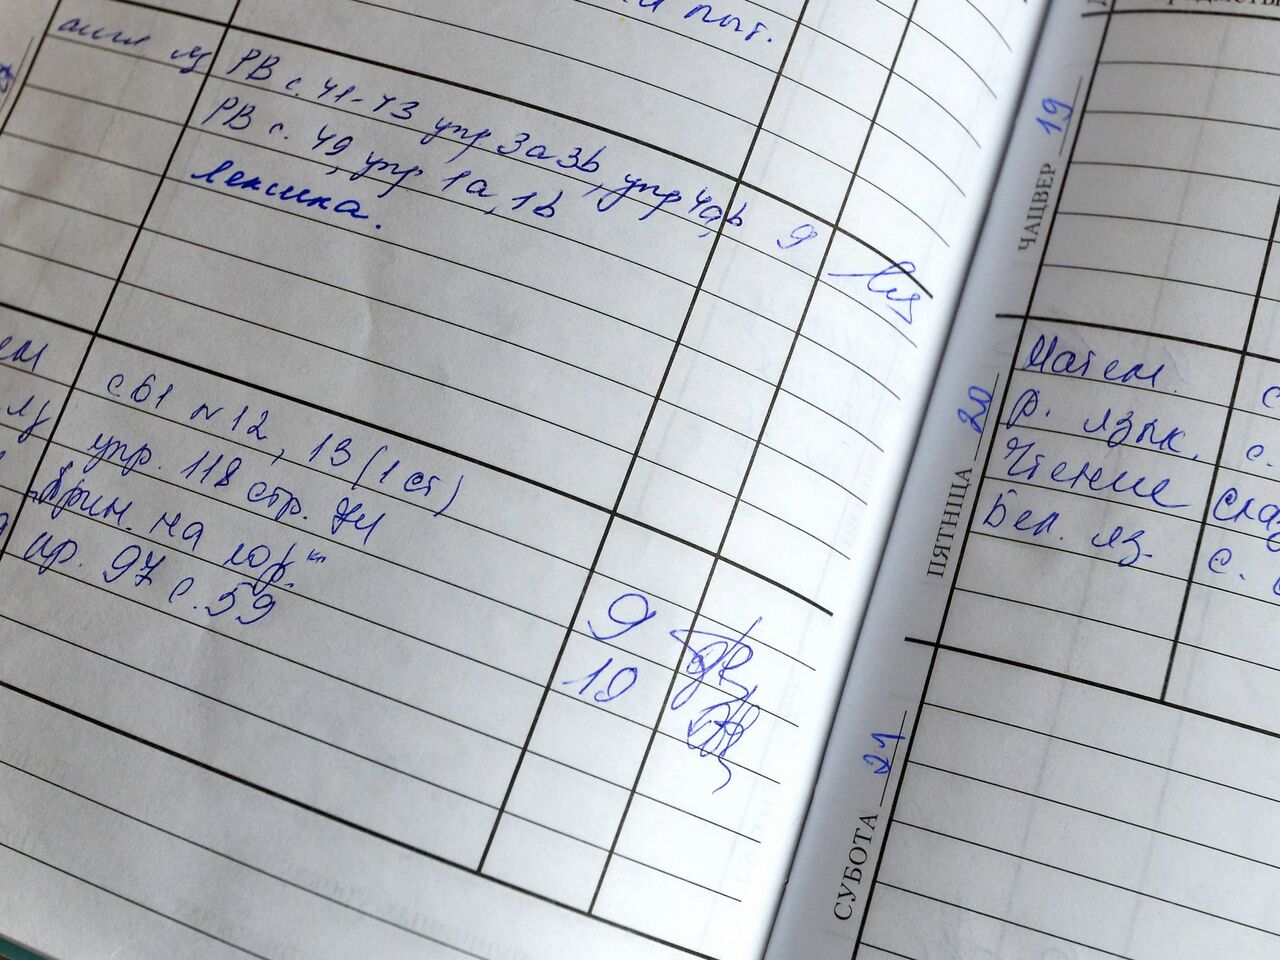 пыт.
англ яз РВ с. 41-43 упр 3а 3b, упр 4a,b 9
РВ с. 49, упр 1а, 1b
лексика.
с 61 №12, 13 (1 ст)
яз упр. 118 стр. 71
"Прин. на гор."
9
упр. 97 с. 59
10
ЧАЦВЕР 19
ПЯТНІЦА 20
Матем. с
р. язык. с.
Чтение
Бел. яз. с.
СУБОТА 21